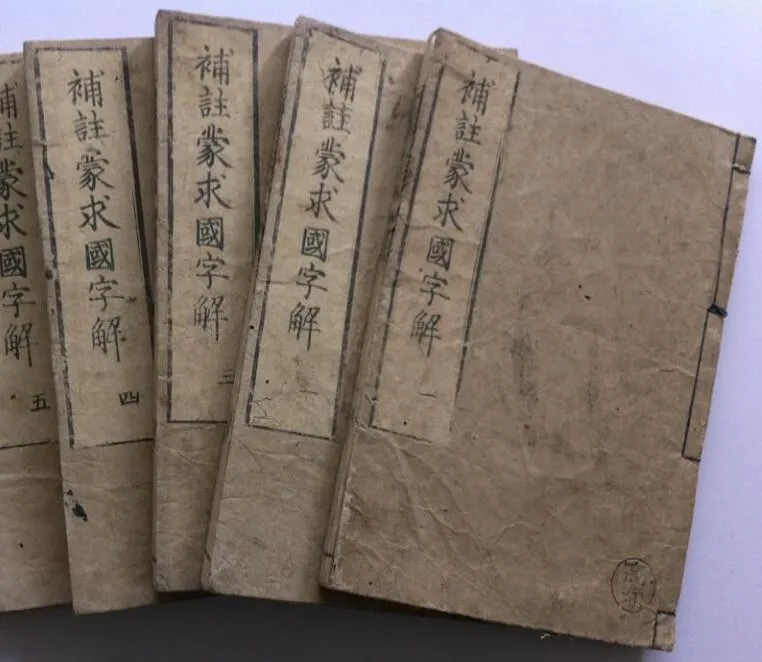 補註蒙求國字解 一
補註蒙求國字解
補註蒙求國字解 三
補註蒙求國字解 四
補註蒙求國字解 五